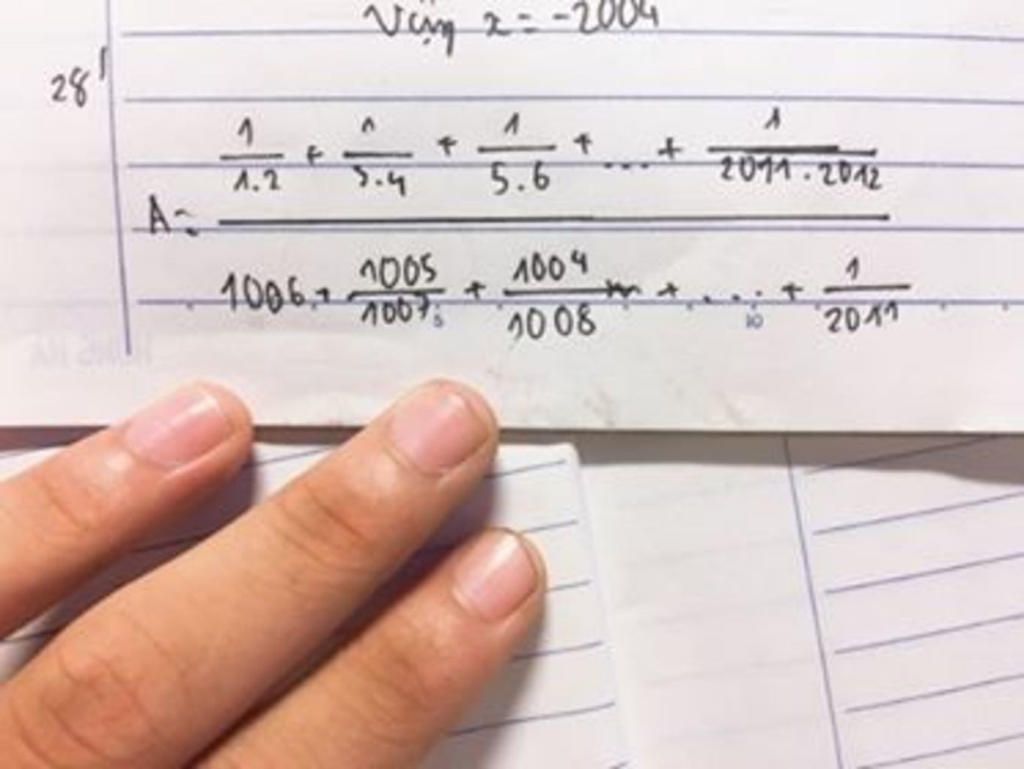 Vậy x = -2004
28)
1/1.2 + 1/3.4 + 1/5.6 + ... + 1/2011.2012
A =
1006 + 1005/1007 + 1004/1008 + .... + 1/2011
5 10